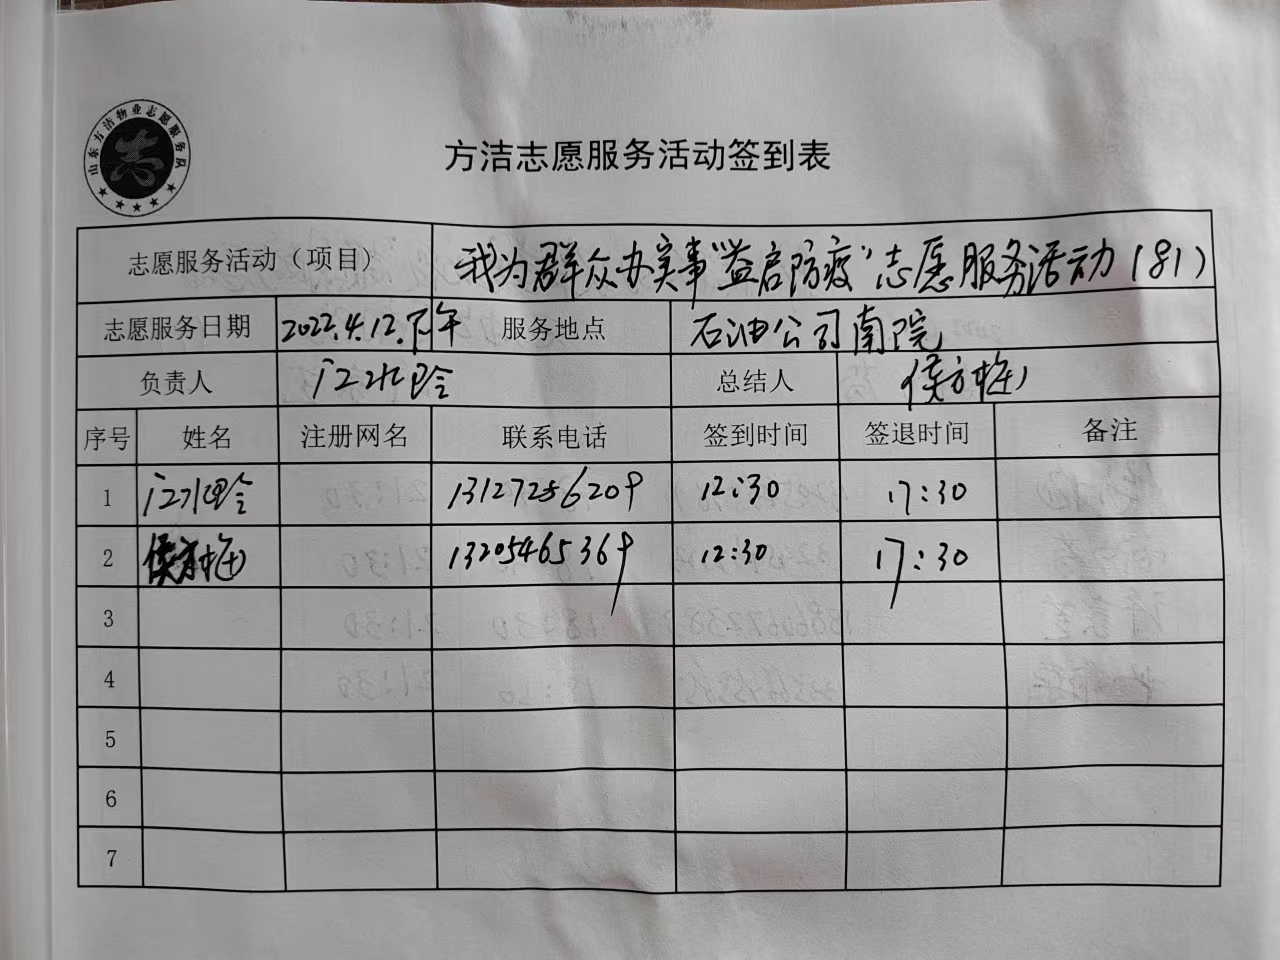 山东方洁物业志愿服务队
志
方洁志愿服务活动签到表
志愿服务活动（项目） 我为群众办实事"益启防疫"志愿服务活动（81）
志愿服务日期 2022.4.12.下午 服务地点 石油公司南院
负责人 总结人 侯方梅
序号 姓名 注册网名 联系电话 签到时间 签退时间 备注
1 13127256209 12:30 17:30
2 侯方梅 13205465369 12:30 17:30
3
4
5
6
7